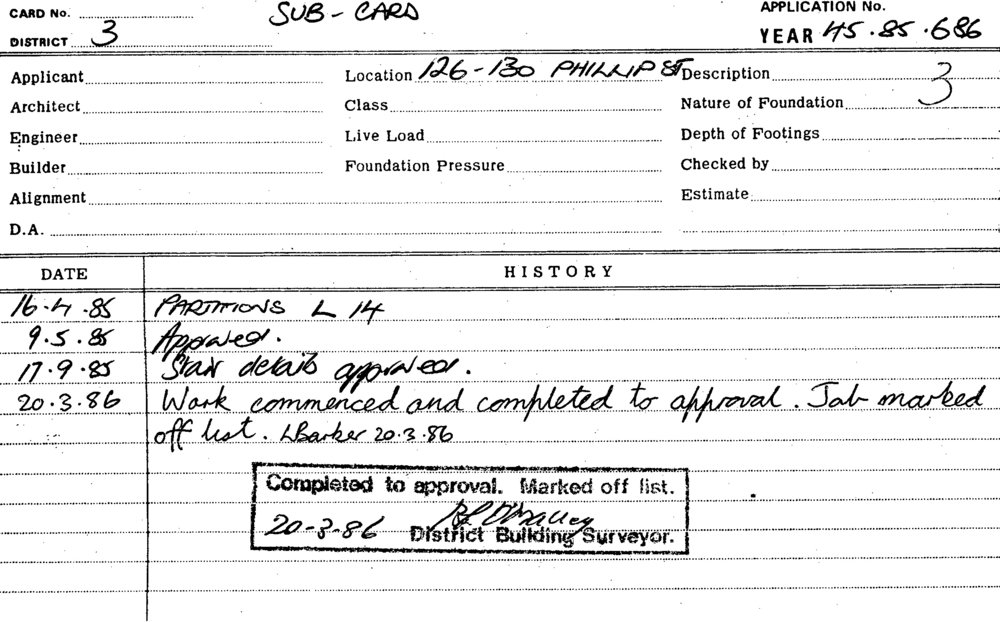 CARD No. SUB - CARD APPLICATION No.
DISTRICT 3 YEAR 45.85.686
Applicant Location 126-130 PHILLIP ST Description 3
Architect Class Nature of Foundation
Engineer Live Load Depth of Footings
Builder Foundation Pressure Checked by
Alignment Estimate
D.A.
DATE HISTORY
16.4.85 PARTITIONS L 14
9.5.85 Approved.
17.9.85 Stair details approved.
20.3.86 Work commenced and completed to approval. Job marked
off list. LBarker 20.3.86
Completed to approval. Marked off list.
20-3-86
District Building Surveyor.